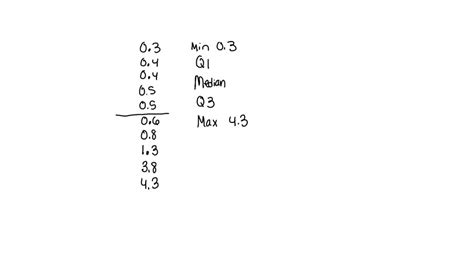 0.3
0.4
0.4
0.5
0.5
0.6
0.8
1.3
3.8
4.3
Min 0.3
Q1
Median
Q3
Max 4.3